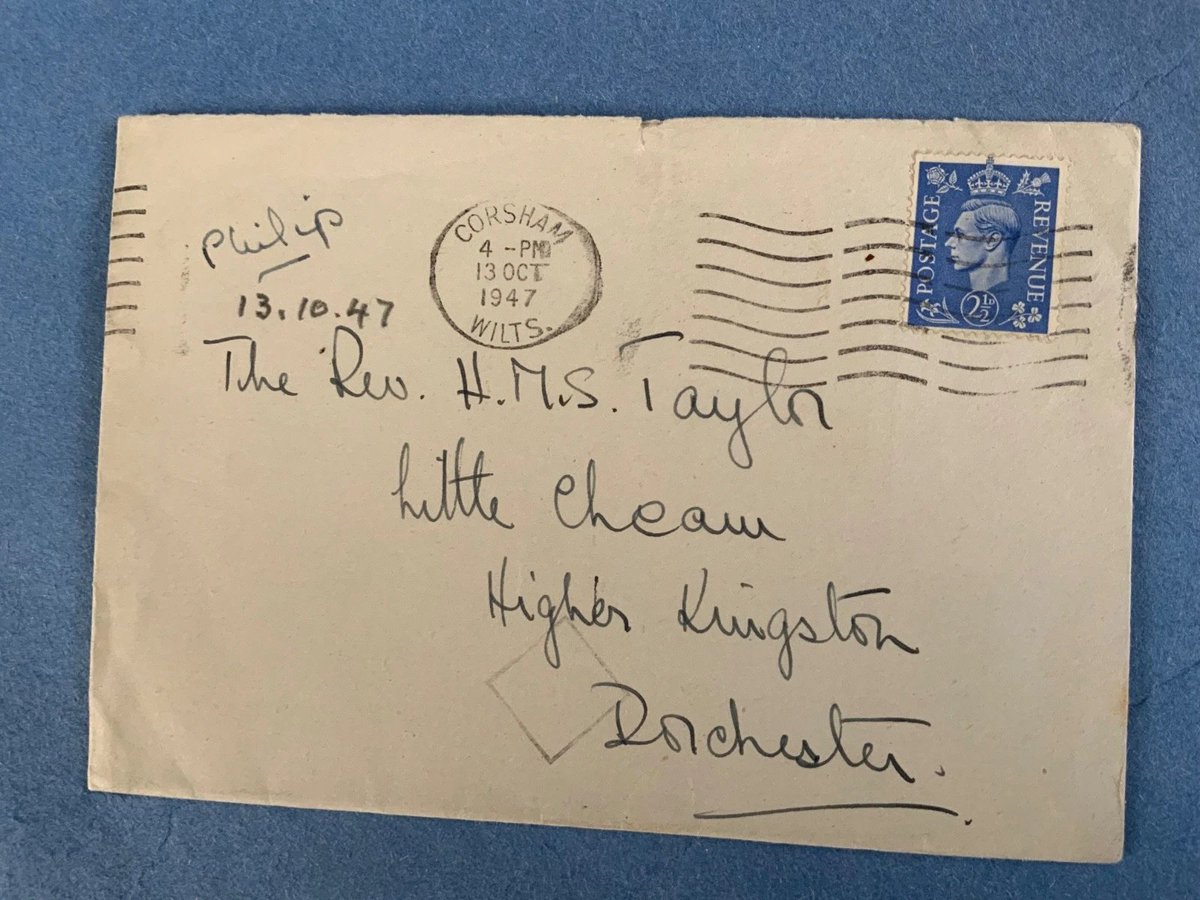 Philip
13.10.47
CORSHAM
4 - PM
13 OCT
1947
WILTS.
POSTAGE
REVENUE
2½D
The Rev. H.M.S. Taylor
Little Cheam
Higher Kingston
Dorchester.